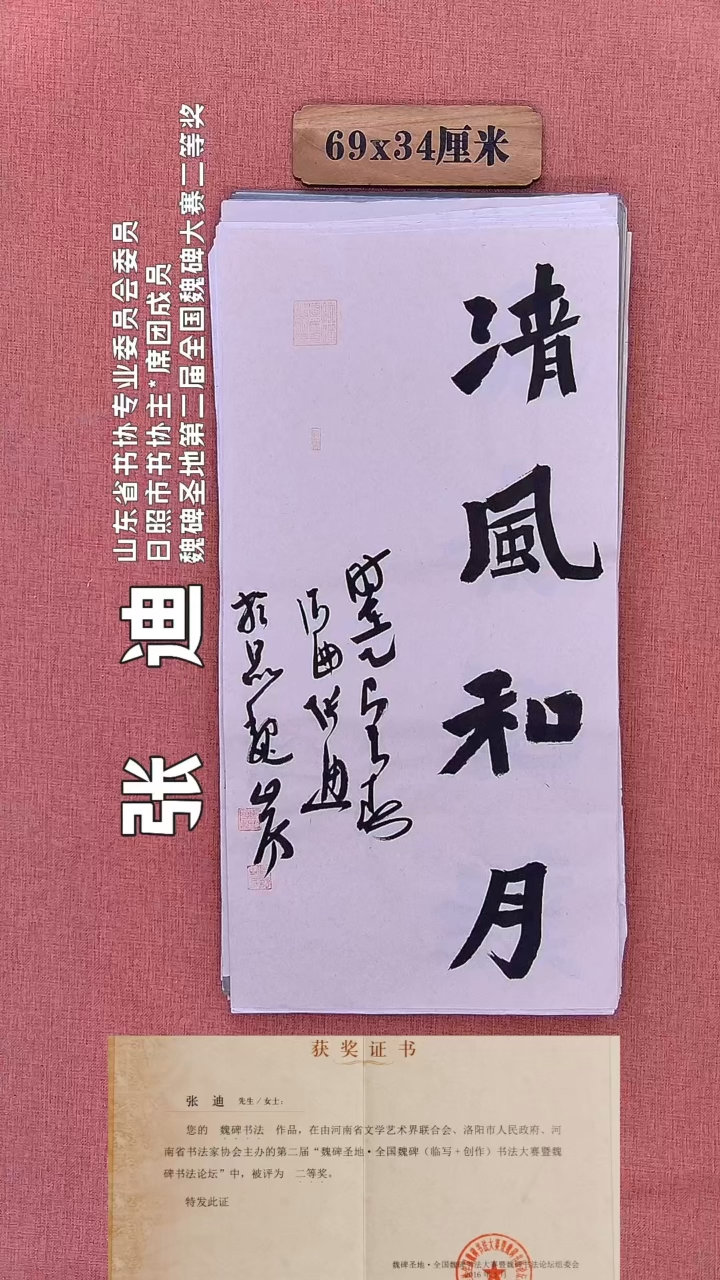 69x34厘米
山东省书协专业委员会委员
日照市书协主*席团成员
魏碑圣地第二届全国魏碑大赛二等奖
张 迪
清風和月
张迪
获奖证书
张 迪 先生/女士:
您的 魏碑书法 作品,在由河南省文学艺术界联合会、洛阳市人民政府、河
南省书法家协会主办的第二届“魏碑圣地·全国魏碑(临写+创作)书法大赛暨魏
碑书法论坛”中,被评为 二等奖。
特发此证
魏碑圣地·全国魏碑书法大赛暨魏碑书法论坛组委会